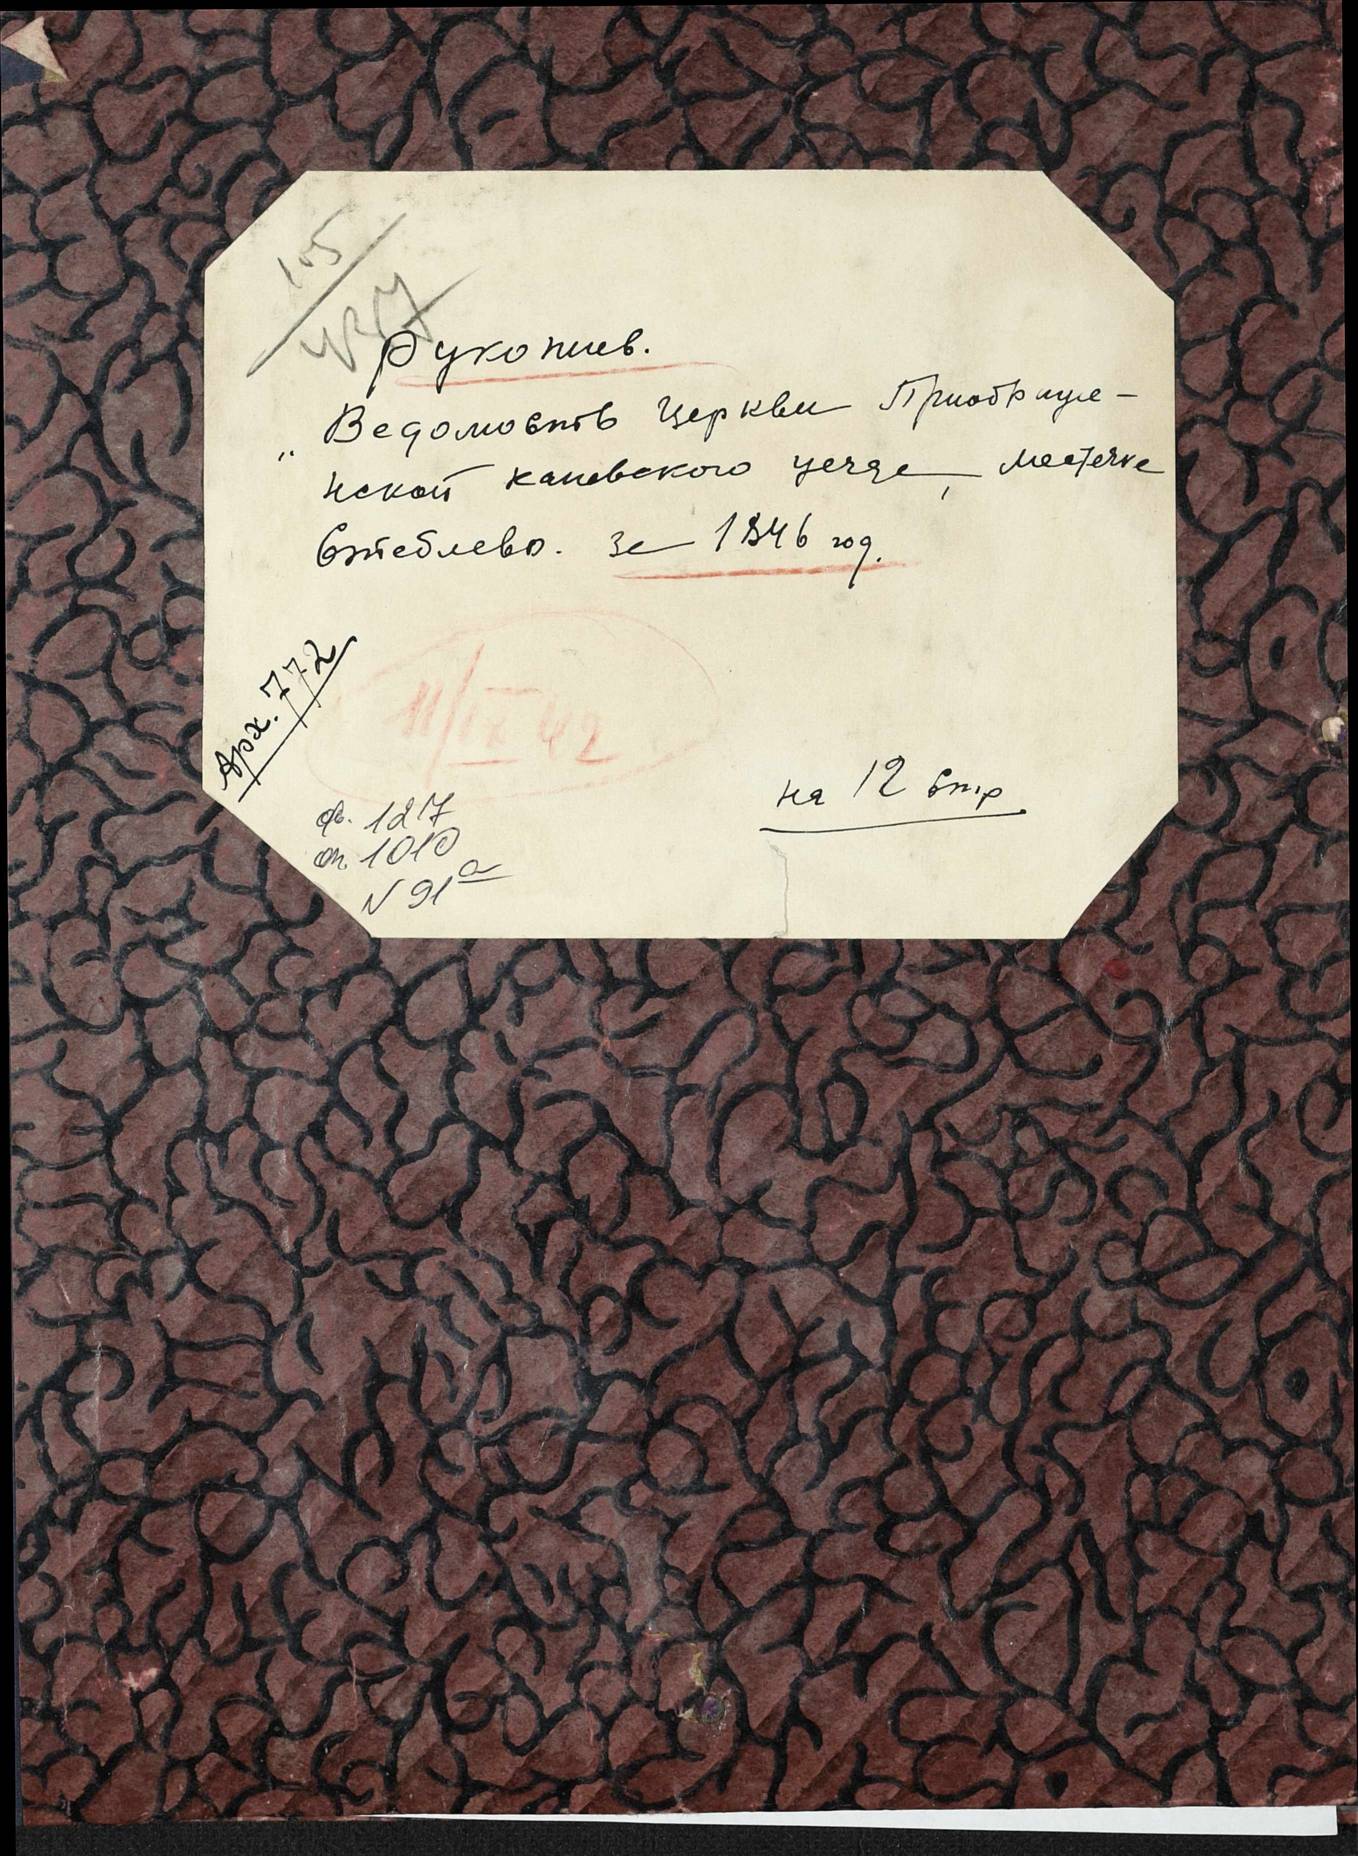 105
4317
Рукопись.
„ Ведомость церкви Приобраще-
нской каневского уезда, местечка
Стеблево. за 1846 год.
Арх. 772
11/IX 42
на 12 стр
ф. 127
оп. 1010
N 91а